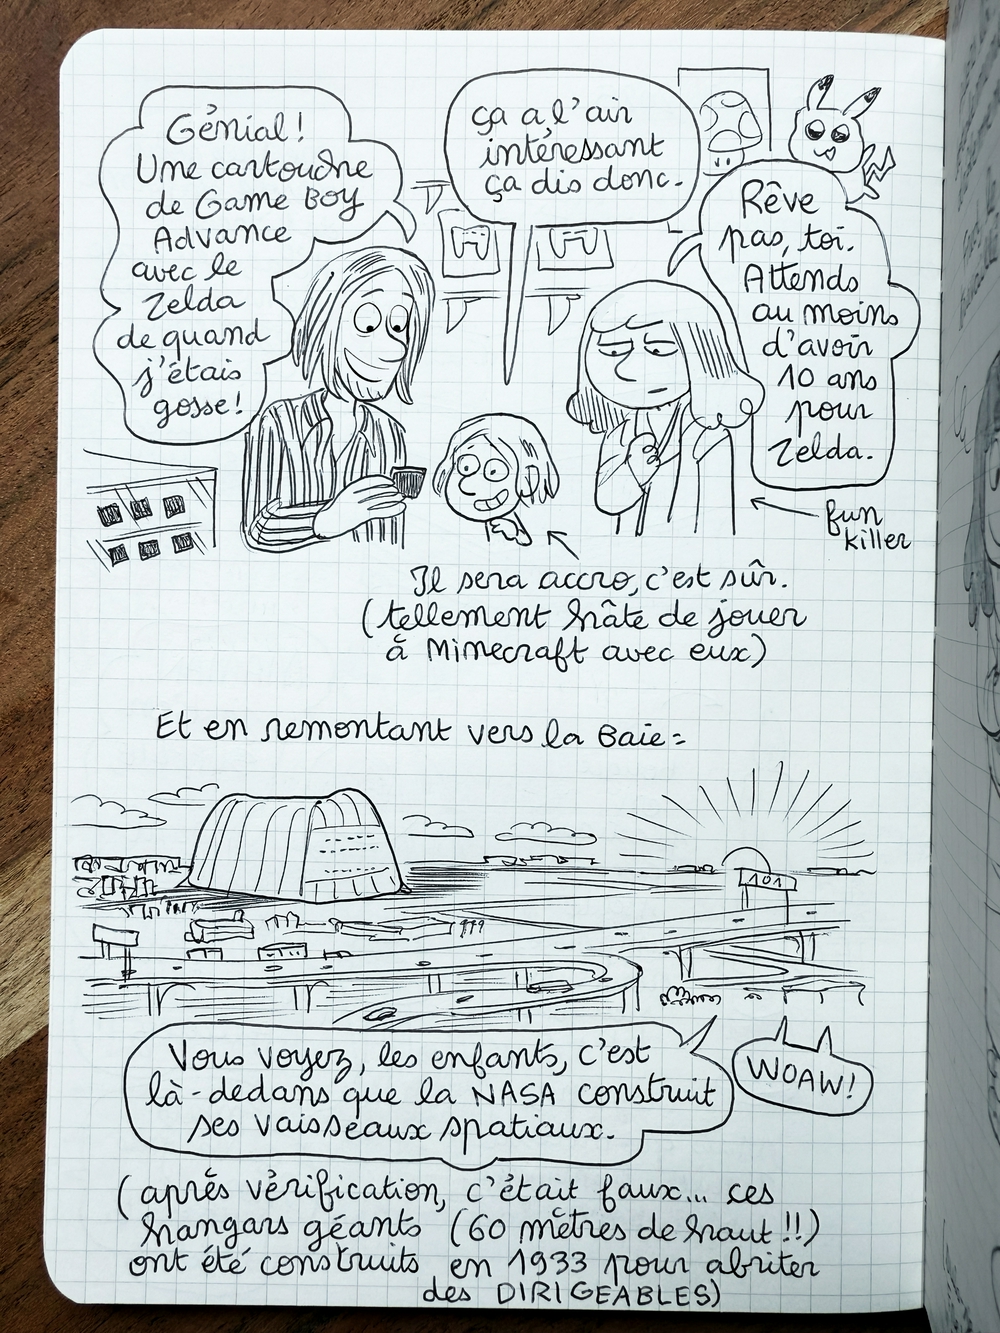 Génial!
Une cartouche
de Game Boy
Advance
avec le
Zelda
de quand
j'étais
gosse!
ça a l'air
intéressant
ça dis donc.
Rêve
pas, toi.
Attends
au moins
d'avoir
10 ans
pour
Zelda.
fun
killer
Il sera accro, c'est sûr.
(tellement hâte de jouer
à Minecraft avec eux)
Et en remontant vers la Baie:
101
Vous voyez, les enfants, c'est
là-dedans que la NASA construit
ses vaisseaux spatiaux.
WOAW!
(après vérification, c'était faux... ces
hangars géants (60 mètres de haut!!)
ont été construits en 1933 pour abriter
des DIRIGEABLES)